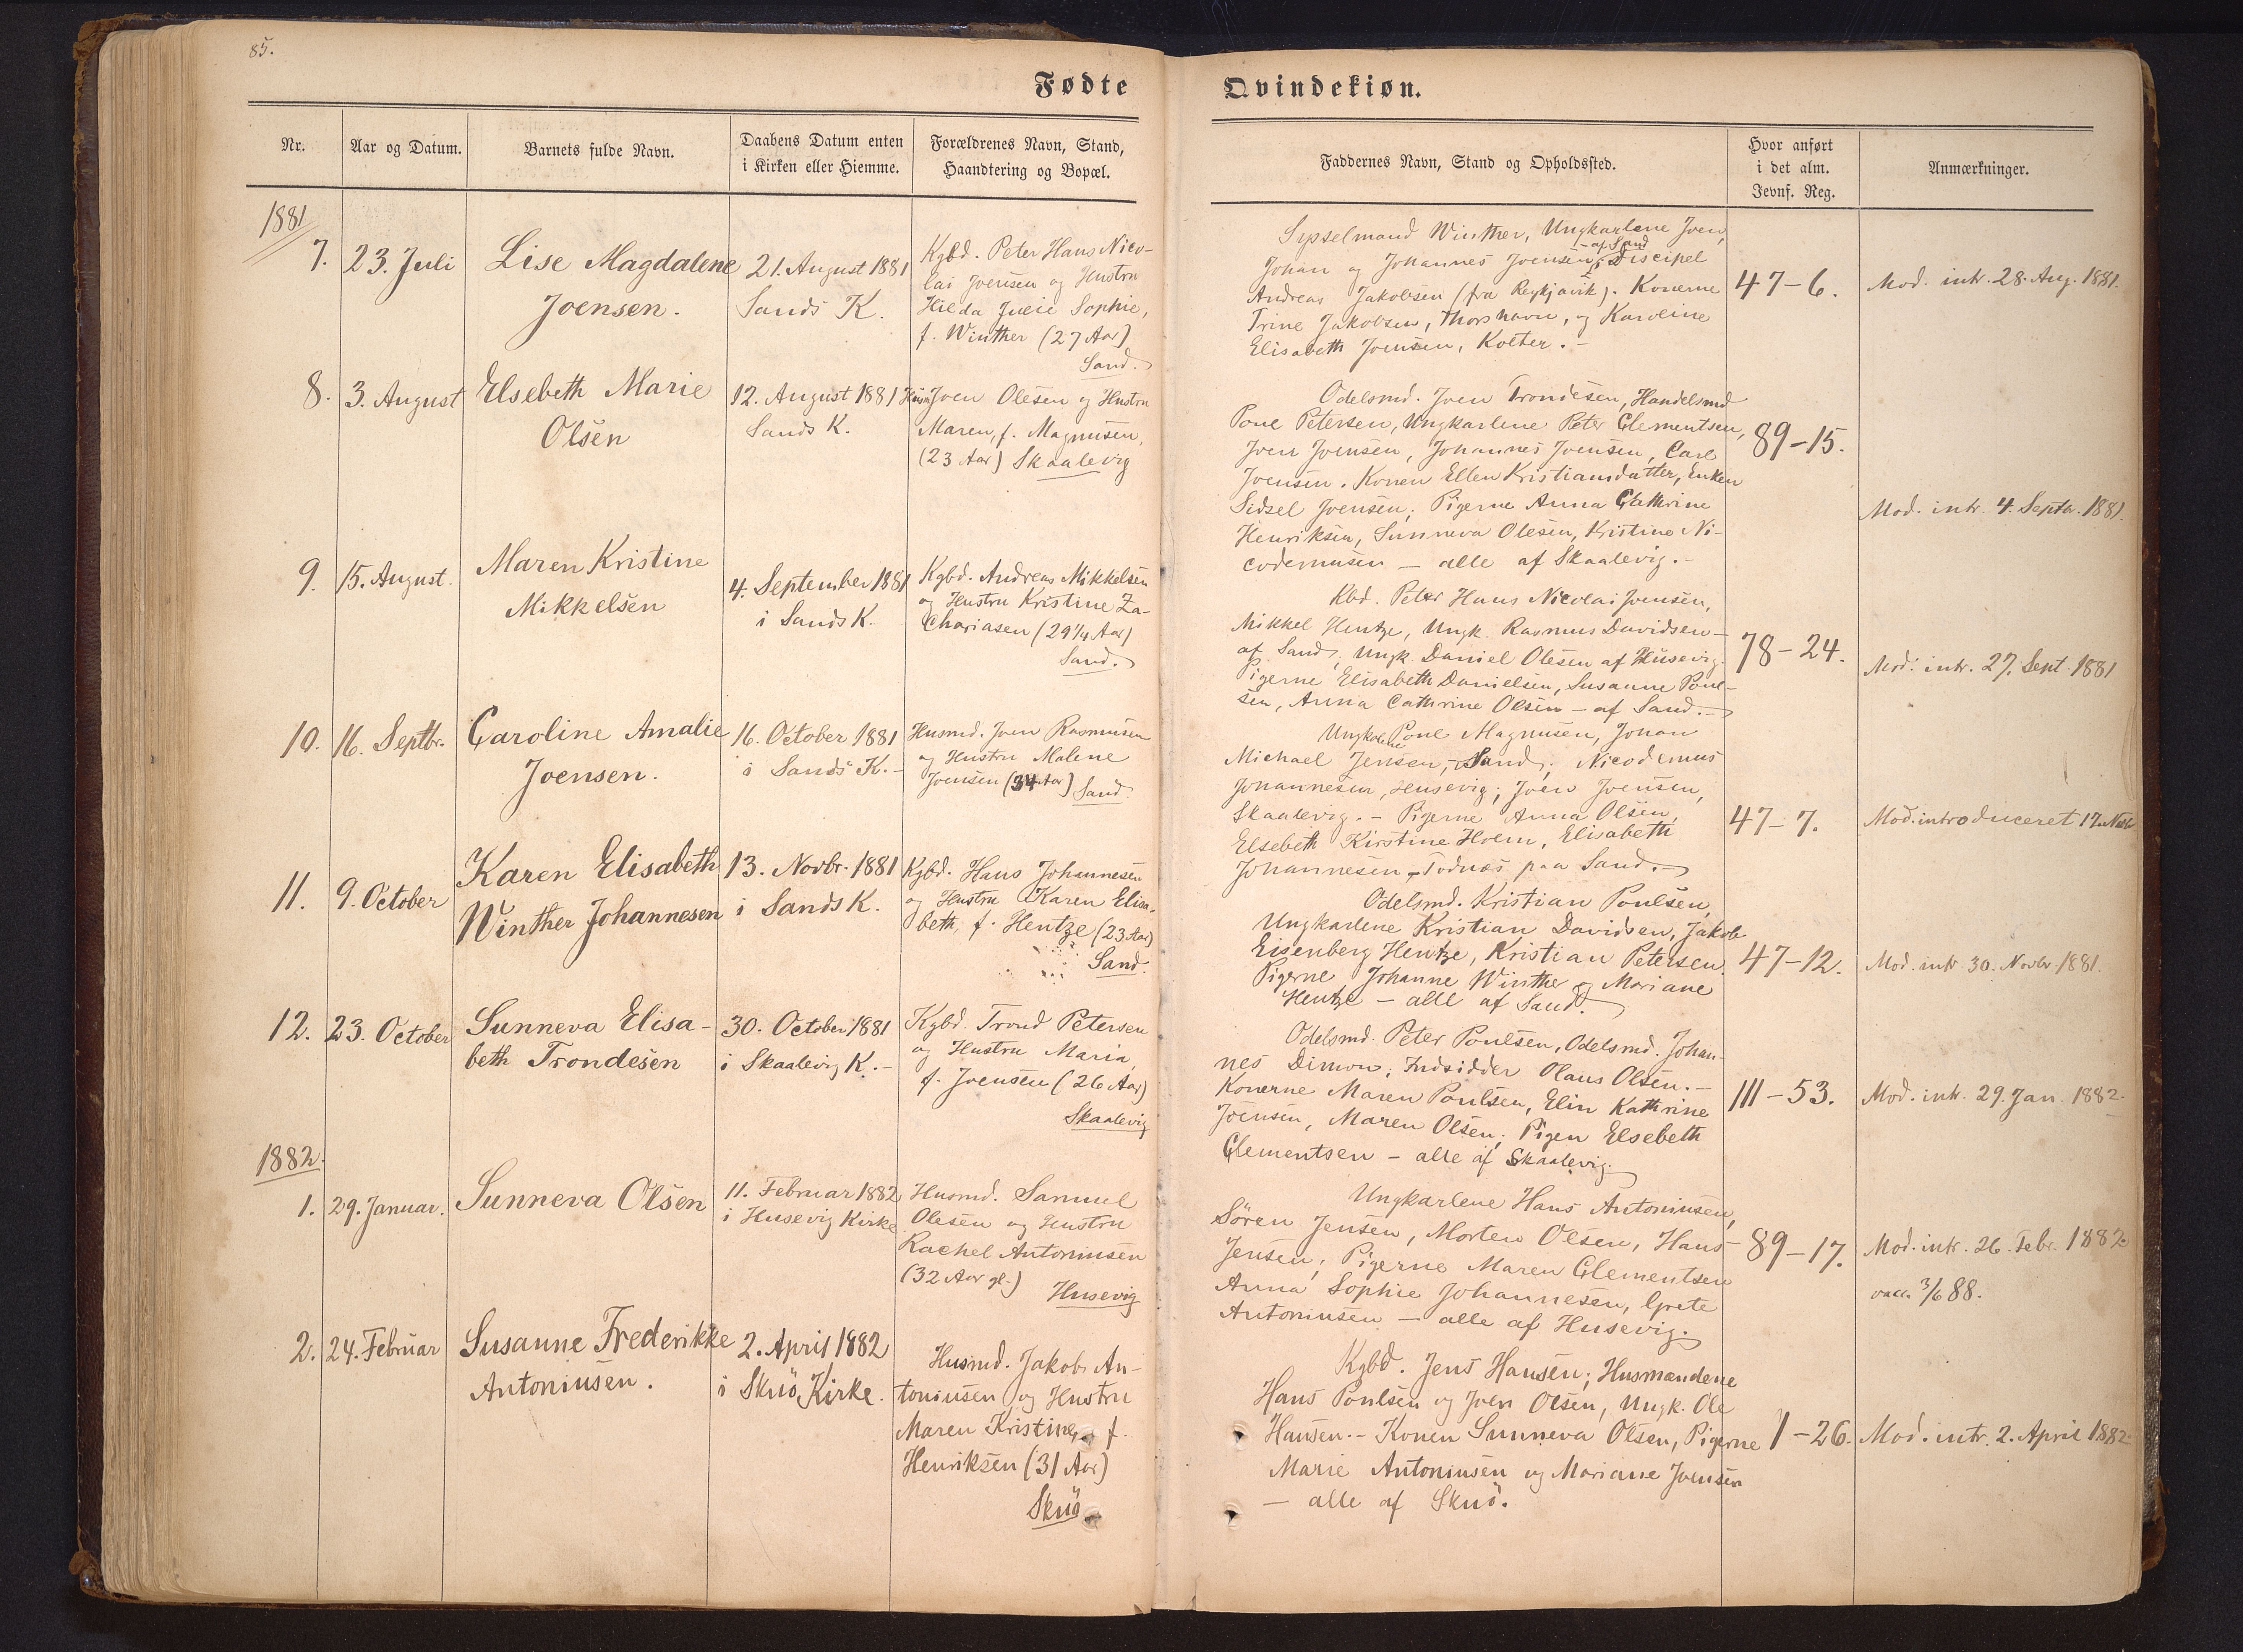 85.
Fødte
Qvindekiøn.
Nr.
Aar og Datum.
Barnets fulde Navn.
Daabens Datum enten
i Kirken eller Hiemme.
Forældrenes Navn, Stand,
Haandtering og Bopæl.
Faddernes Navn, Stand og Opholdssted.
Hvor anført
i det alm.
Jevnf. Reg.
Anmærkninger.
1881
7.
23. Juli
Lise Magdalene
Joensen.
21. August 1881
Sands K.
Kgbd. Peter Hans Nico-
lai Joensen og Hustru
Hilda Julie Sophie,
f. Winther (27 Aar)
Sand.
Sysselmand Winther, Ungkarlene Joen,
Johan og Johannes Joensen - af Sand, Discipel
Andreas Jakobsen (fra Reykjavik). Konerne
Trine Jakobsen, Thorshavn, og Karoline
Elisabeth Joensen, Kolter. -
47-6.
Mod. intr. 28. Aug. 1881.
8.
3. August
Elsebeth Marie
Olsen
12. August 1881
Sands K.
Husm. Joen Olesen og Hustru
Maren, f. Magnusen,
(23 Aar) Skaalevig
Odelsmd. Joen Trondesen, Handelsmd
Poul Petersen, Ungkarlene Peter Clementsen,
Joen Joensen, Johannes Joensen, Carl
Joensen. Konen Ellen Kristiansdatter, Enken
Sidsel Joensen; Pigerne Anna Cathrine
Henriksen, Sunneva Olesen, Kristine Ni-
codemusen - alle af Skaalevig. -
89-15.
Mod. intr. 4. Septbr. 1881.
9.
15. August.
Maren Kristine
Mikkelsen
4. September 1881
i Sands K.
Kgbd. Andreas Mikkelsen
og Hustru Kristine Za-
chariasen (29 1/4 Aar)
Sand.
Kbd. Peter Hans Nicolai Joensen,
Mikkel Hentze, Ungk. Rasmus Davidsen -
af Sand; Ungk. Daniel Olesen af Husevig.
Pigerne Elisabeth Danielsen, Susanne Poul-
sen, Anna Cathrine Olsen - af Sand. -
78-24.
Mod. intr. 27. Sept. 1881
10.
16. Septbr.
Caroline Amalie
Joensen.
16. October 1881
i Sands K. -
Husmd. Joen Rasmusen
og Hustru Malene
Joensen (34 Aar) Sand.
Ungkarlene Poul Magnusen, Johan
Michael Jensen, - Sand; Nicodemus
Johannesen, Husevig; Joen Joensen,
Skaalevig. - Pigerne Anna Olsen,
Elsebeth Kirstine Holm, Elisabeth
Johannesen - Todnæs paa Sand. -
47-7.
Mod. introduceret 17. Novbr
11.
9. October
Karen Elisabeth
Winther Johannesen
13. Novbr. 1881
i Sands K.
Kgbd. Hans Johannesen
og Hustru Karen Elisa-
beth, f. Hentze (23 Aar)
Sand.
Odelsmd. Kristian Poulsen,
Ungkarlene Kristian Davidsen, Jakob
Eisenberg Hentze, Kristian Petersen.
Pigerne Johanne Winther og Mariane
Hentze - alle af Sand.
47-12.
Mod. intr. 30. Novbr. 1881.
12.
23. October
Sunneva Elisa-
beth Trondesen
30. October 1881
i Skaalevig K. -
Kgbd. Trond Petersen
og Hustru Maria,
f. Joensen (26 Aar)
Skaalevig
Odelsmd. Peter Poulsen, Odelsmd. Johan-
nes Dimon; Indsidder Olaus Olsen. -
Konerne Maren Poulsen, Elin Kathrine
Joensen, Maren Olsen; Pigen Elsebeth
Clementsen - alle af Skaalevig.
111-53.
Mod. intr. 29. Jan. 1882.
1882.
1.
29. Januar.
Sunneva Olsen
11. Februar 1882
i Husevig Kirke
Husmd. Samuel
Olesen og Hustru
Rachel Antoniusen
(32 Aar gl.)
Husevig
Ungkarlene Hans Antoniusen,
Sören Jensen, Morten Olsen, Hans
Jensen; Pigerne Maren Clementsen
Anna Sophie Johannesen, Grete
Antoniusen - alle af Husevig.
89-17.
Mod. intr. 26. Febr. 1882.
vacc. 3/6 88.
2.
24. Februar
Susanne Frederikke
Antoniusen.
2. April 1882
i Skuö Kirke.
Husmd. Jakob An-
toniusen og Hustru
Maren Kristine, f.
Henriksen (31 Aar)
Skuö
Kgbd. Jens Hansen; Husmændene
Hans Poulsen og Joen Olsen, Ungk. Ole
Hansen. - Konen Sunneva Olsen, Pigerne
Marie Antoniusen og Mariane Joensen
- alle af Skuö.
1-26.
Mod. intr. 2. April 1882.